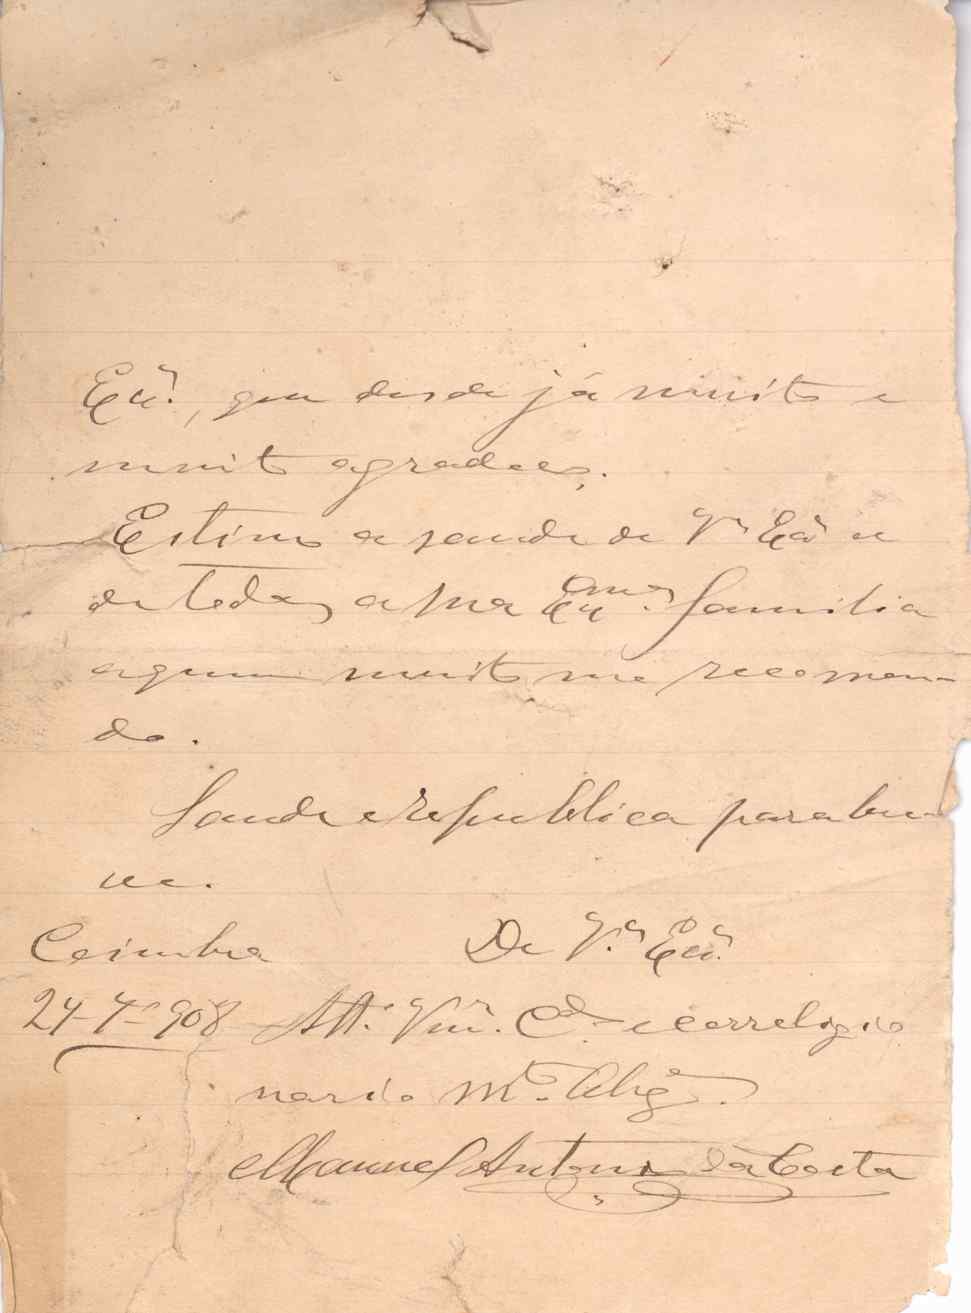 Exª., que desde já muito e
muito agradece.
Estimo a saude de Vª Exª e
de toda a sua Exma. familia
a quem muito me recomen-
do.
Saude e republica para bre-
ve.
Coimbra De V.ª Exª.
24-4º-908 Att.º Vnr. Cdº. e correligio
nario Mto. Obrgº.
Manuel Antonio da Costa